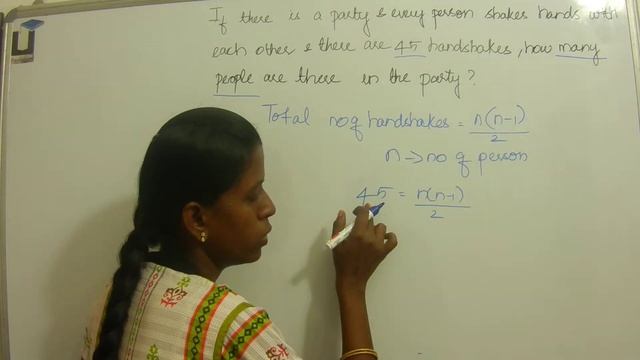 If there is a party & every person shakes hands with
each other & there are 45 handshakes, how many
people are there in the party?
Total no of handshakes = n(n-1)/2
n → no of person
45 = n(n-1)/2